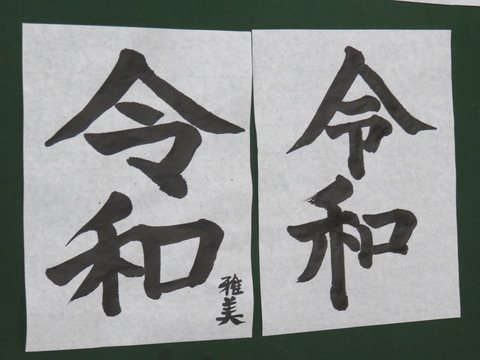 令和
雅美
令和